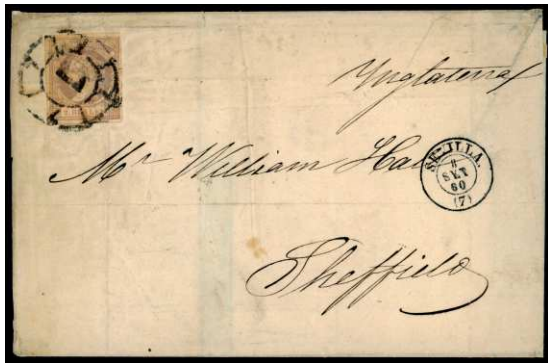 7
Ynglaterra
Mr William Hall
SEVILLA.
8
SET
60
(7)
Sheffield